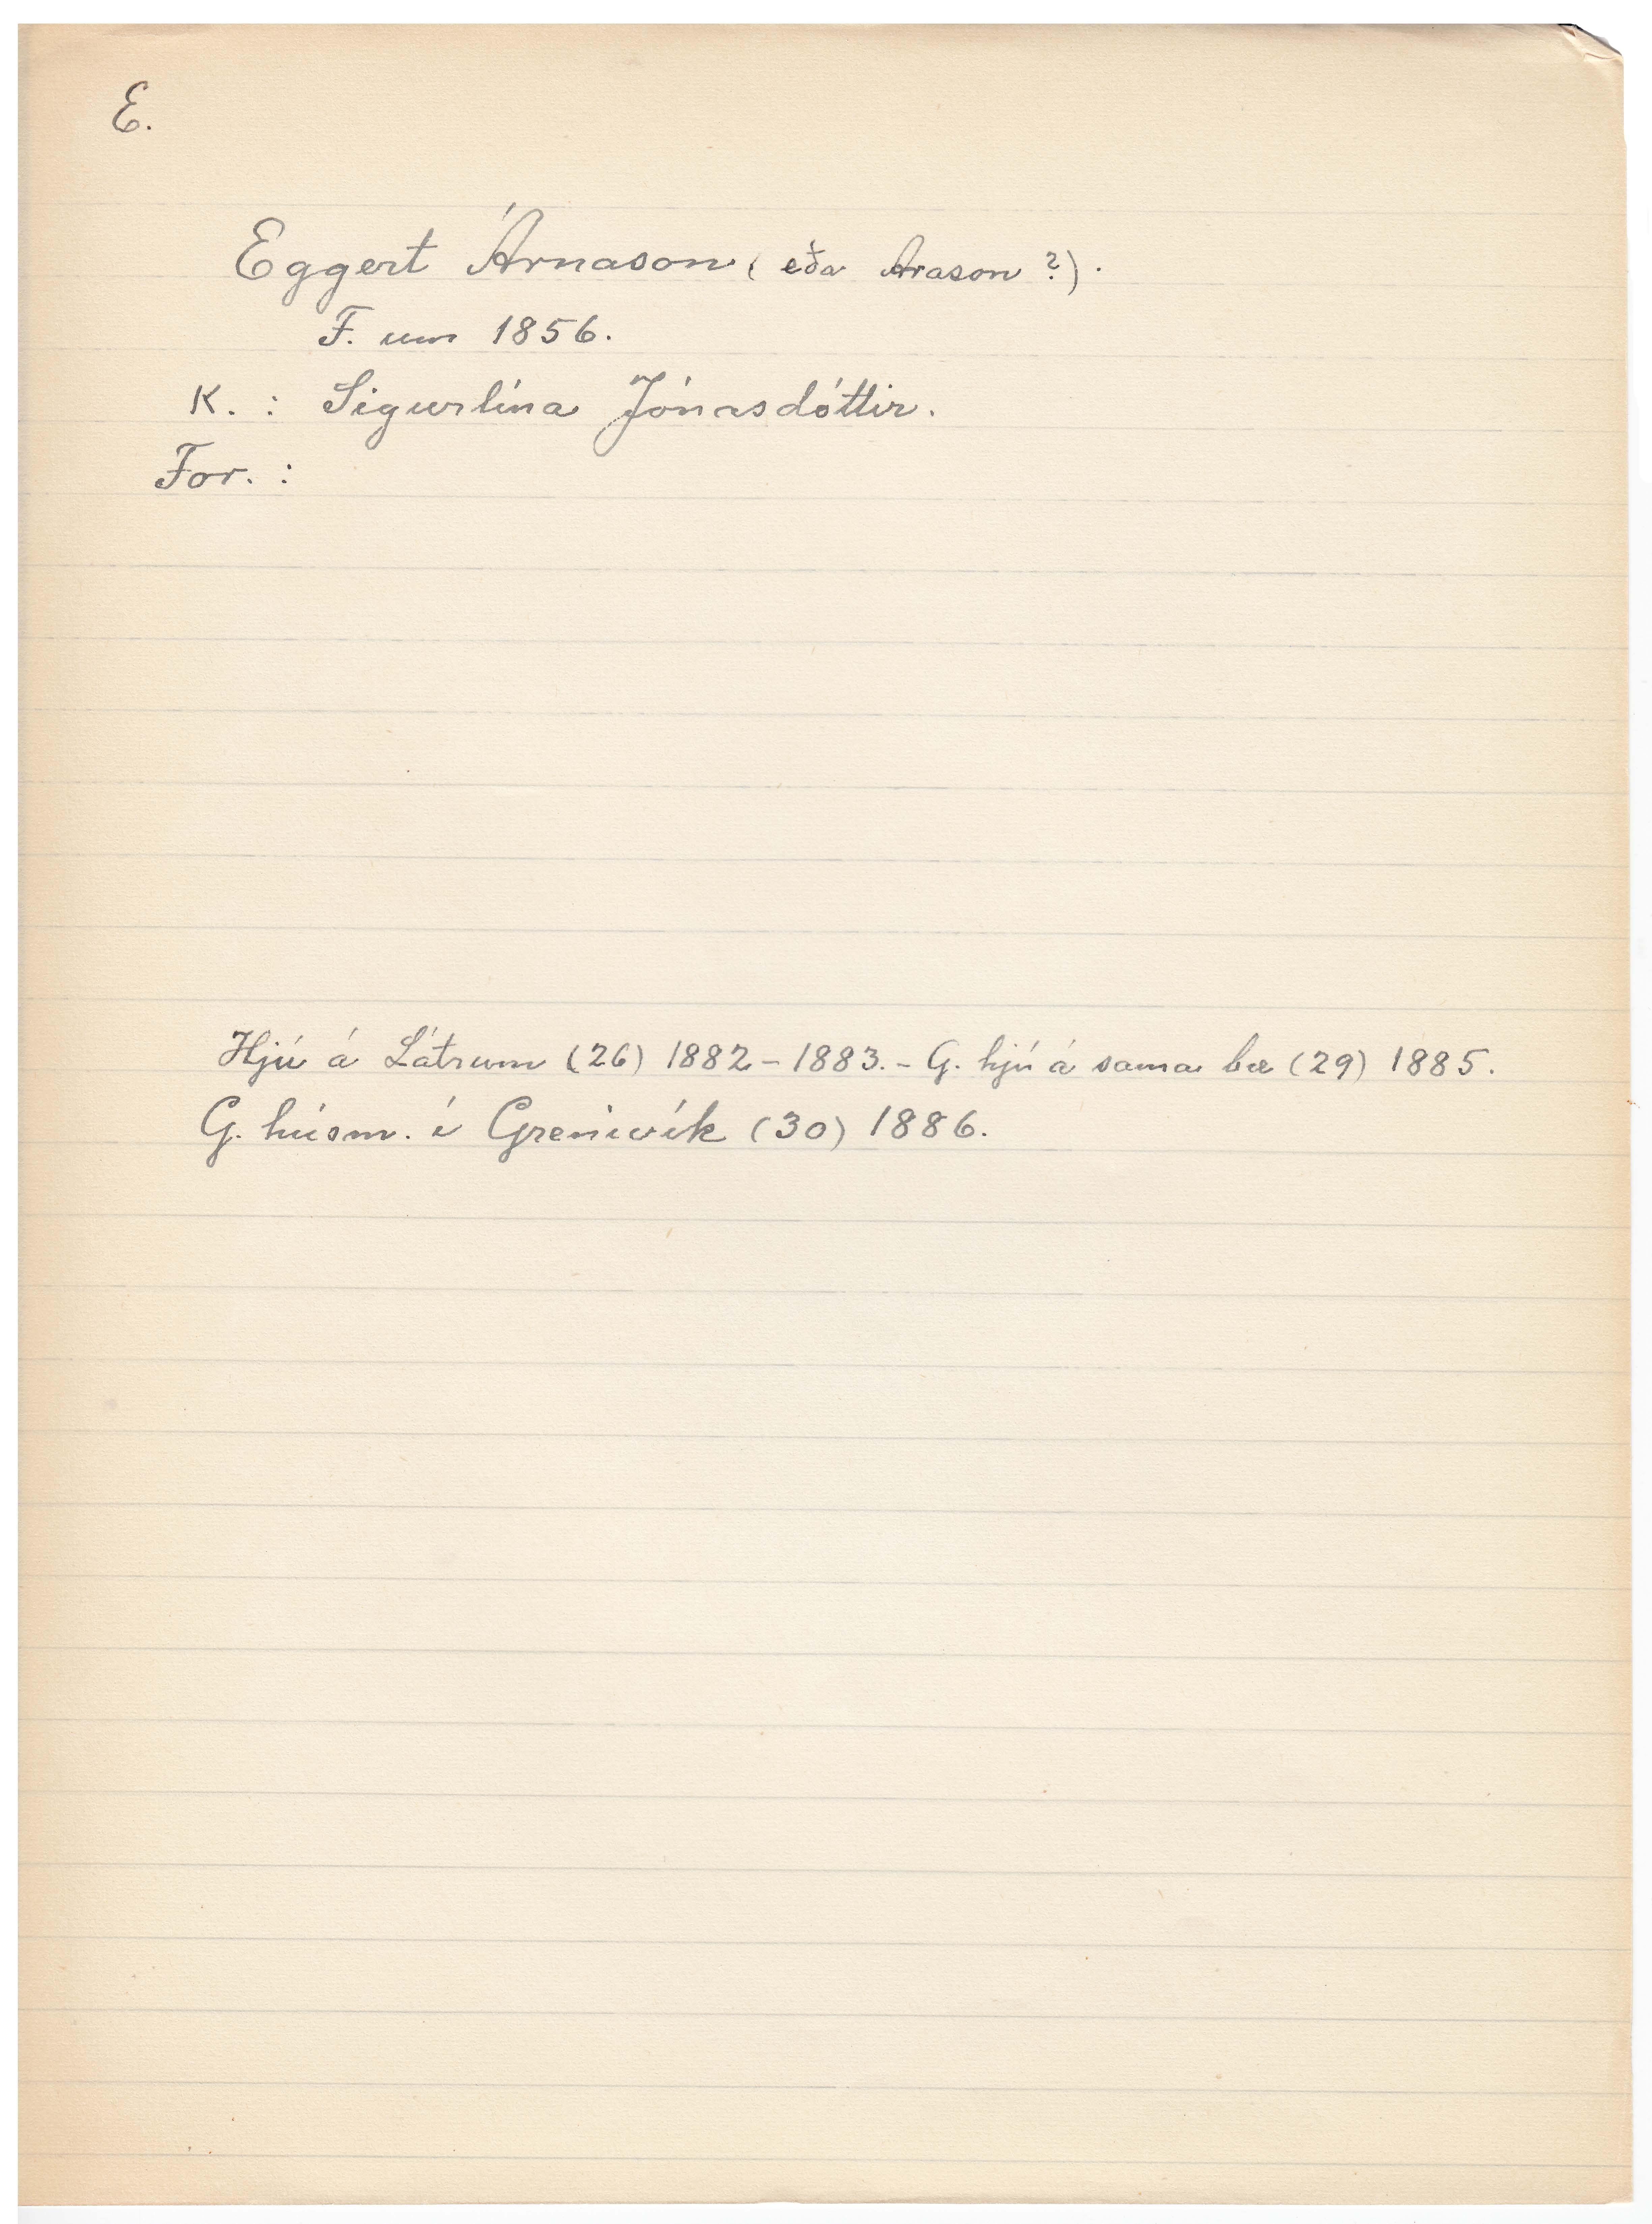 E.
Eggert Árnason (eða Arason?).
F. um 1856.
K. : Sigurlína Jónasdóttir.
For. :
Hjú á Látrum (26) 1882-1883. - G. hjú á sama bæ (29) 1885.
G. húsm. í Grenivík (30) 1886.